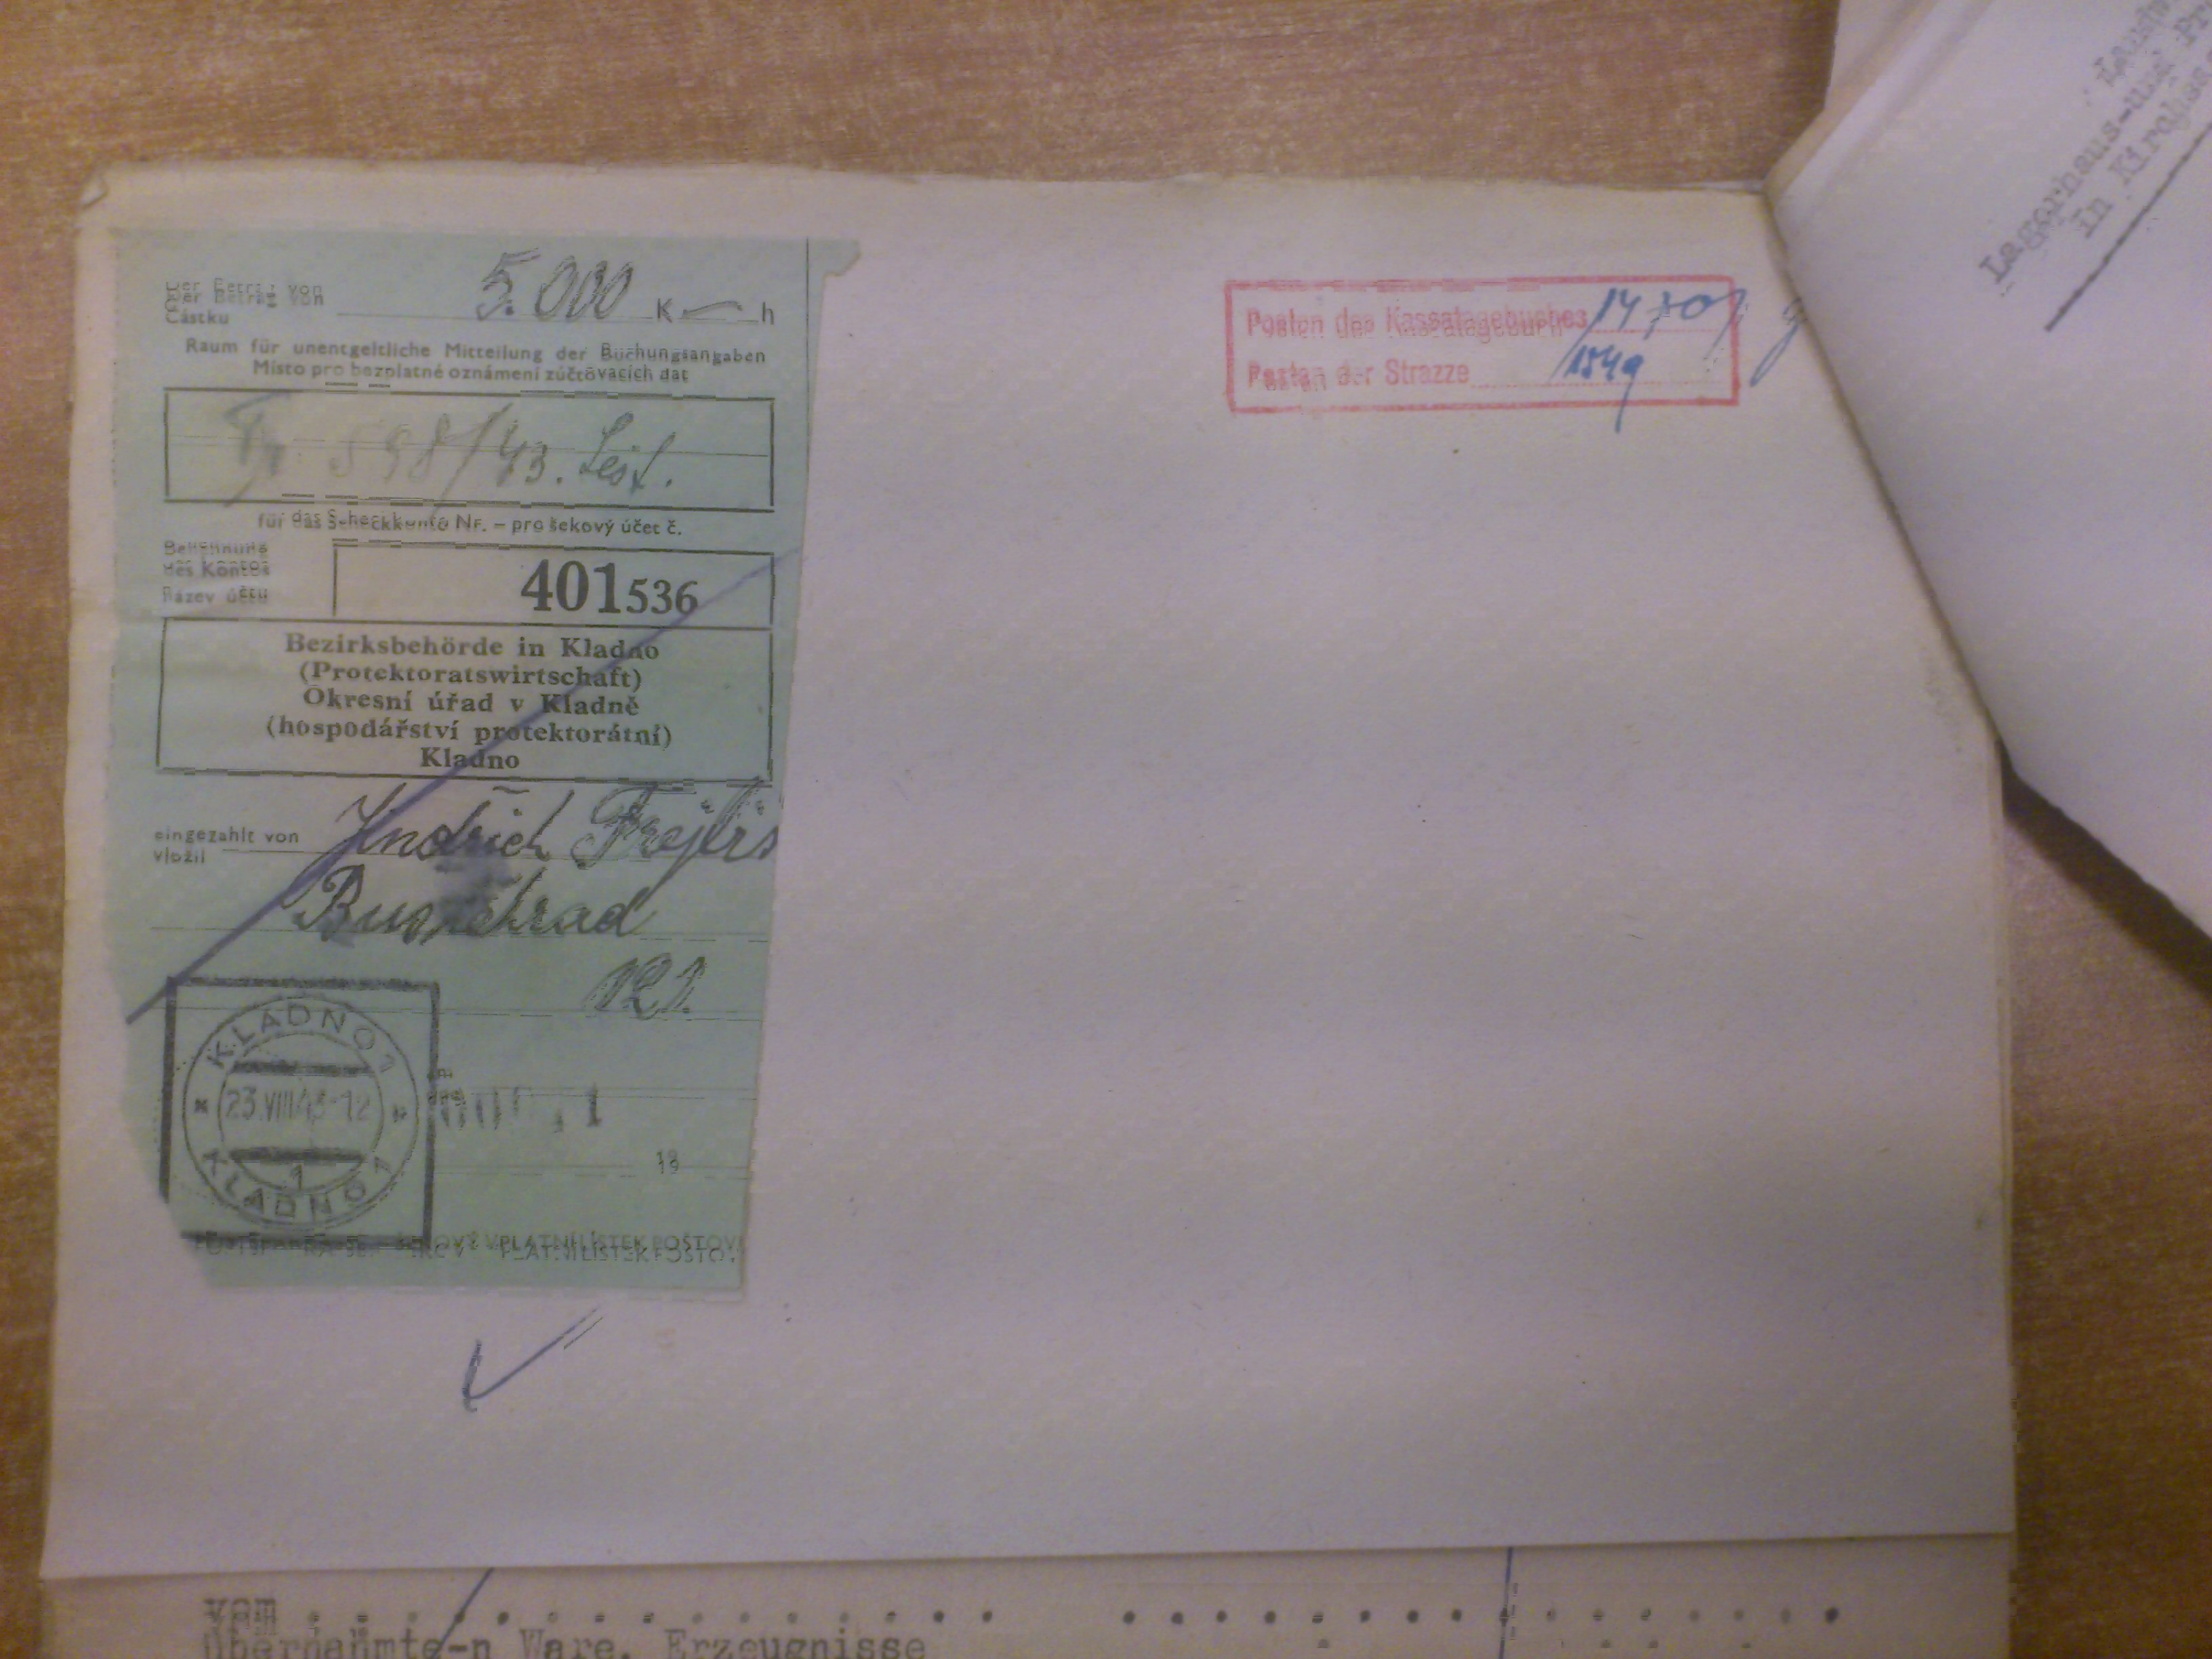 Der Betrag von
Částku
5.000 K — h
Raum für unentgeltliche Mitteilung der Buchungsangaben
Místo pro bezplatné oznámení zúčtovacích dat
598/43.
für das Scheckkonto Nr. – pro šekový účet č.
des Kontos
Název účtu
401536
Bezirksbehörde in Kladno
(Protektoratswirtschaft)
Okresní úřad v Kladně
(hospodářství protektorátní)
Kladno
eingezahlt von
vložil
Jindřich
Buštěhrad
121.
KLADNO 1
23.VIII.43-12
1
KLADNO 1
19
VPLATNÍ LÍSTEK POŠTOV
Posten des Kassatagebuches
Posten der Strazze 1549
Lagerhaus-und
in
vom
übernahmte-n Ware, Erzeugnisse